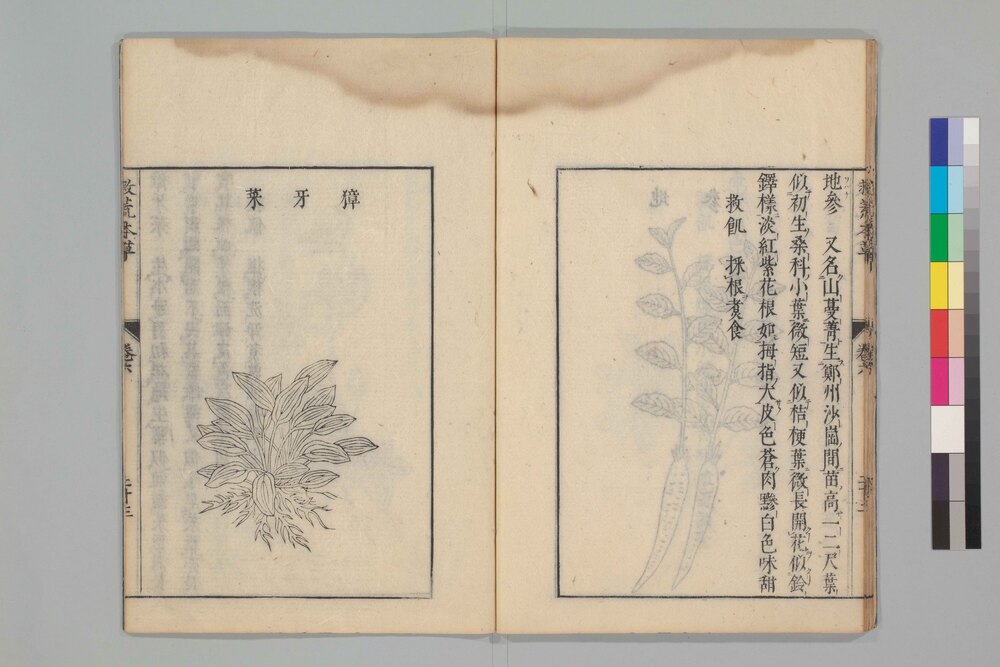 地參 又名山蔓菁生鄭州沙崗間苗高一二尺葉
似初生桑科小葉微短又似桔梗葉微長開花似鈴
鐸樣淡紅紫花根如拇指大皮色蒼肉黲白色味甜
救飢 採根煮食
獐牙菜
救荒本草
卷六
二十三